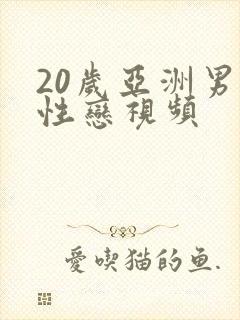 20歲亞洲男
性戀視頻
愛喫猫的鱼.